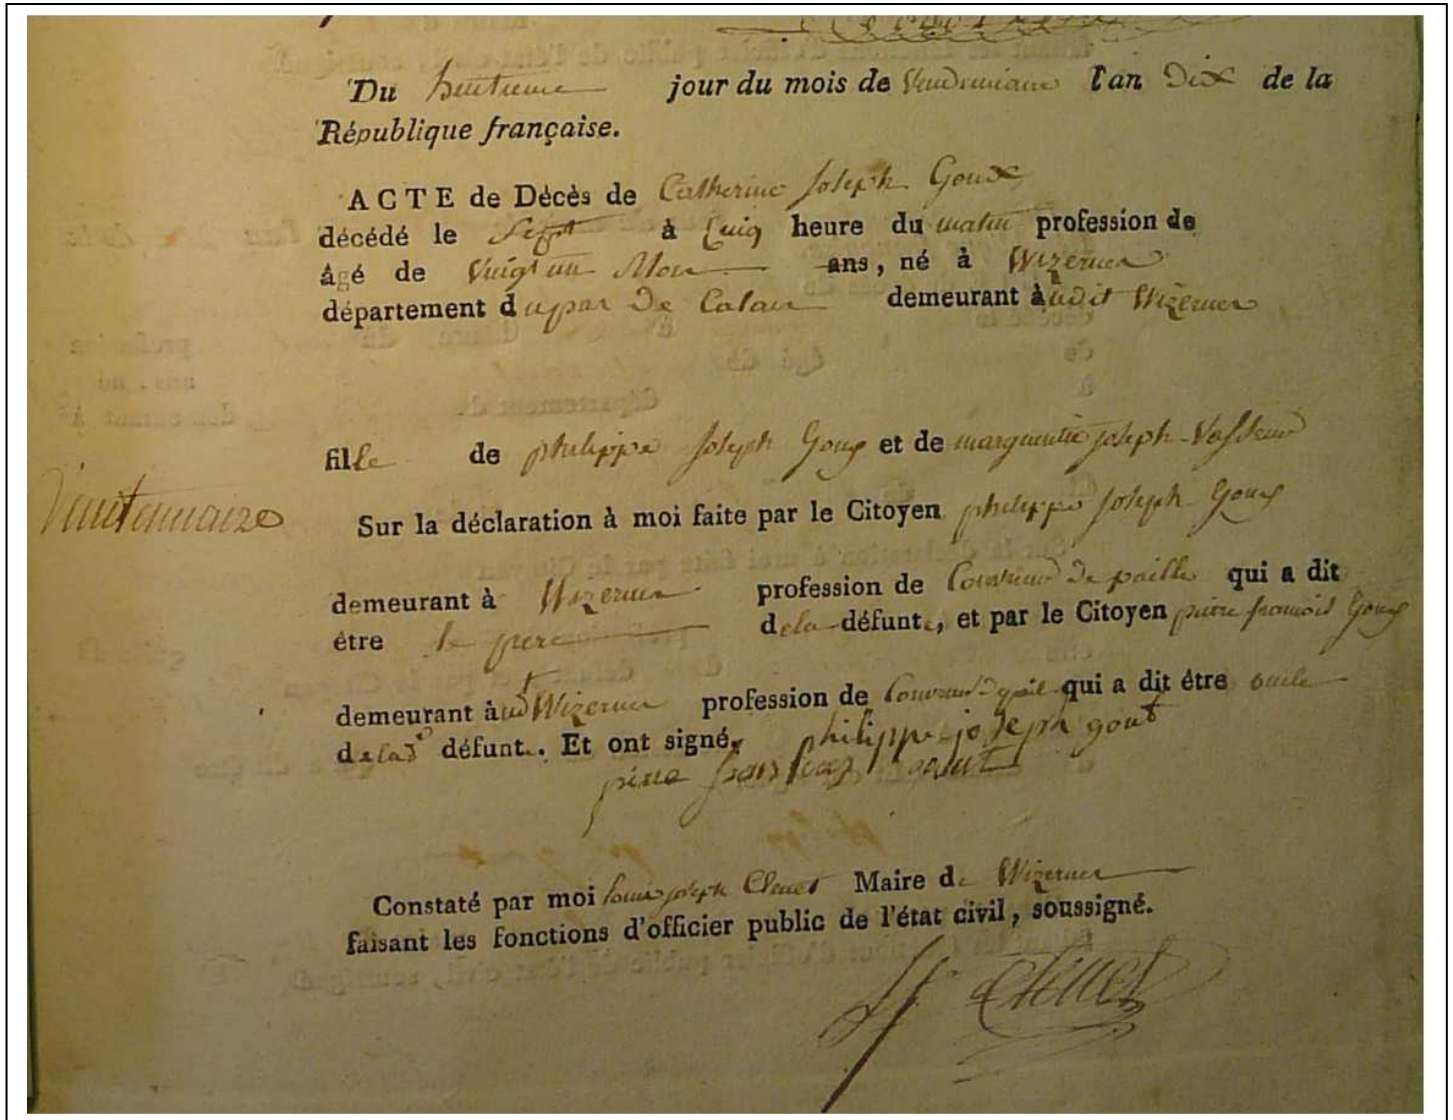 Du huitieme jour du mois de Vendemiaire l'an Dix de la
République française.
ACTE de Décès de Catherine Joseph Goux
décédé le Sept à Cinq heure du matin profession de
âgé de Vingt un Mois ans, né à Wizernes
département du pas De Calais demeurant audit Wizernes
fille de philippe Joseph Goux et de marguerite joseph Vasseur
Vendemiaire
Sur la déclaration à moi faite par le Citoyen philippe Joseph Goux
demeurant à Wizernes profession de Couvreur De paille qui a dit
être le pere dela défunte, et par le Citoyen pierre francois Goux
demeurant audt Wizernes profession de Couvreur qui a dit être oncle
de lad défunte. Et ont signé, philippe joseph gout
pierre gout
Constaté par moi Louis joseph Clenet Maire de Wizernes
faisant les fonctions d'officier public de l'état civil, soussigné.
Clenet